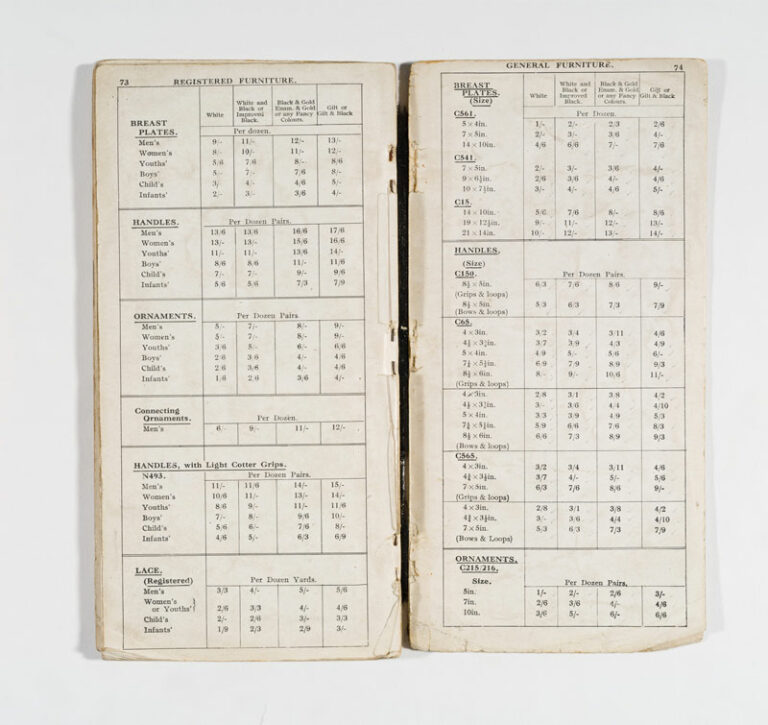 73 REGISTERED FURNITURE.
White
White and Black or Improved Black.
Black & Gold Enam. & Gold or any Fancy Colours.
Gilt or Gilt & Black
BREAST PLATES.
Per dozen.
Men's 9/- 11/- 12/- 13/-
Women's 8/- 10/- 11/- 12/-
Youths' 5/6 7/6 8/- 8/6
Boys' 5/- 7/- 7/6 8/-
Child's 3/- 4/- 4/6 5/-
Infants' 2/- 3/- 3/6 4/-
HANDLES. Per Dozen Pairs.
Men's 13/6 13/6 16/6 17/6
Women's 13/- 13/- 15/6 16/6
Youths' 11/- 11/- 13/6 14/-
Boys' 8/6 8/6 11/- 11/6
Child's 7/- 7/- 9/- 9/6
Infants' 5/6 5/6 7/3 7/9
ORNAMENTS. Per Dozen Pairs
Men's 5/- 7/- 8/- 9/-
Women's 5/- 7/- 8/- 9/-
Youths' 3/6 5/- 6/- 6/6
Boys' 2/6 3/6 4/- 4/6
Child's 2/6 3/6 4/- 4/6
Infants' 1/6 2/6 3/6 4/-
Connecting Ornaments. Per Dozen.
Men's 6/- 9/- 11/- 12/-
HANDLES, with Light Cotter Grips.
N493. Per Dozen Pairs.
Men's 11/- 11/6 14/- 15/-
Women's 10/6 11/- 13/- 14/-
Youths' 8/6 9/- 11/- 11/6
Boys' 7/- 8/- 9/6 10/-
Child's 5/6 6/- 7/6 8/-
Infants' 4/6 5/- 6/3 6/9
LACE.
(Registered) Per Dozen Yards.
Men's 3/3 4/- 5/- 5/6
Women's
or Youths' } 2/6 3/3 4/- 4/6
Child's 2/- 2/6 3/- 3/3
Infants' 1/9 2/3 2/9 3/-
GENERAL FURNITURE. 74
BREAST PLATES. (Size)
White
White and Black or Improved Black.
Black & Gold Enam. & Gold or any Fancy Colours.
Gilt or Gilt & Black
C561. Per Dozen.
5 × 4in. 1/- 2/- 2/3 2/6
7 × 5in. 2/- 3/- 3/6 4/-
14 × 10in. 4/6 6/6 7/- 7/6
C541.
7 × 5in. 2/- 3/- 3/6 4/-
9 × 6½in. 2/6 3/6 4/- 4/6
10 × 7½in. 3/- 4/- 4/6 5/-
C15.
14 × 10in. 5/6 7/6 8/- 8/6
19 × 12½in. 9/- 11/- 12/- 13/-
21 × 14in. 10/- 12/- 13/- 14/-
HANDLES.
(Size)
C150. Per Dozen Pairs.
8½ × 5in. 6/3 7/6 8/6 9/-
(Grips & loops)
8½ × 5in. 5/3 6/3 7/3 7/9
(Bows & loops)
C65.
4 × 3in. 3/2 3/4 3/11 4/6
3/7 3/9 4/3 4/9
5 × 4in. 4/9 5/- 5/6 6/-
6/9 7/9 8/9 9/3
8½ × 6in. 8/- 9/- 10/6 11/-
(Grips & loops)
4 × 3in. 2/8 3/1 3/8 4/2
3/- 3/6 4/4 4/10
5 × 4in. 3/3 3/9 4/9 5/3
5/9 6/6 7/6 8/3
8½ × 6in. 6/6 7/3 8/9 9/3
(Bows & loops)
C565.
4 × 3in. 3/2 3/4 3/11 4/6
3/7 4/- 5/- 5/6
7 × 5in. 6/3 7/6 8/6 9/-
(Grips & loops)
4 × 3in. 2/8 3/1 3/8 4/2
3/- 3/6 4/4 4/10
7 × 5in. 5/3 6/3 7/3 7/9
(Bows & Loops)
ORNAMENTS.
C215/216.
Size. Per Dozen Pairs.
5in. 1/- 2/- 2/6 3/-
7in. 2/6 3/6 4/- 4/6
10in. 3/6 5/- 6/- 6/6